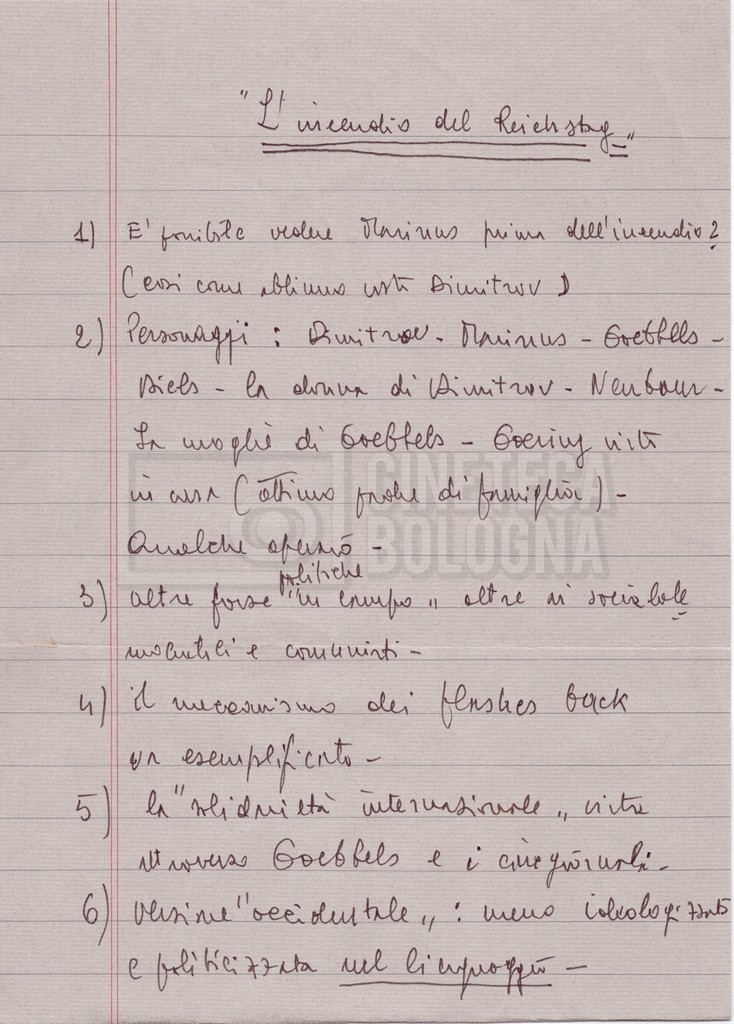 "L'incendio del Reichstag"
1) E' possibile vedere Marinus prima dell'incendio?
(così come abbiamo visto Dimitrov)
2) Personaggi: Dimitrov - Marinus - Goebbels -
Diels - la donna di Dimitrov - Neubauer -
La moglie di Goebbels - Goering visto
in casa (ottimo padre di famiglia) -
Qualche operaio -
politiche
3) altre forze "in campo" oltre ai socialde
mocratici e comunisti -
4) il meccanismo dei flashes back
va esemplificato -
5) la "solidarietà internazionale" vista
attraverso Goebbels e i cinegiornali -
6) versione "occidentale": meno ideologizzata
e politicizzata nel linguaggio -
CINETECA
BOLOGNA